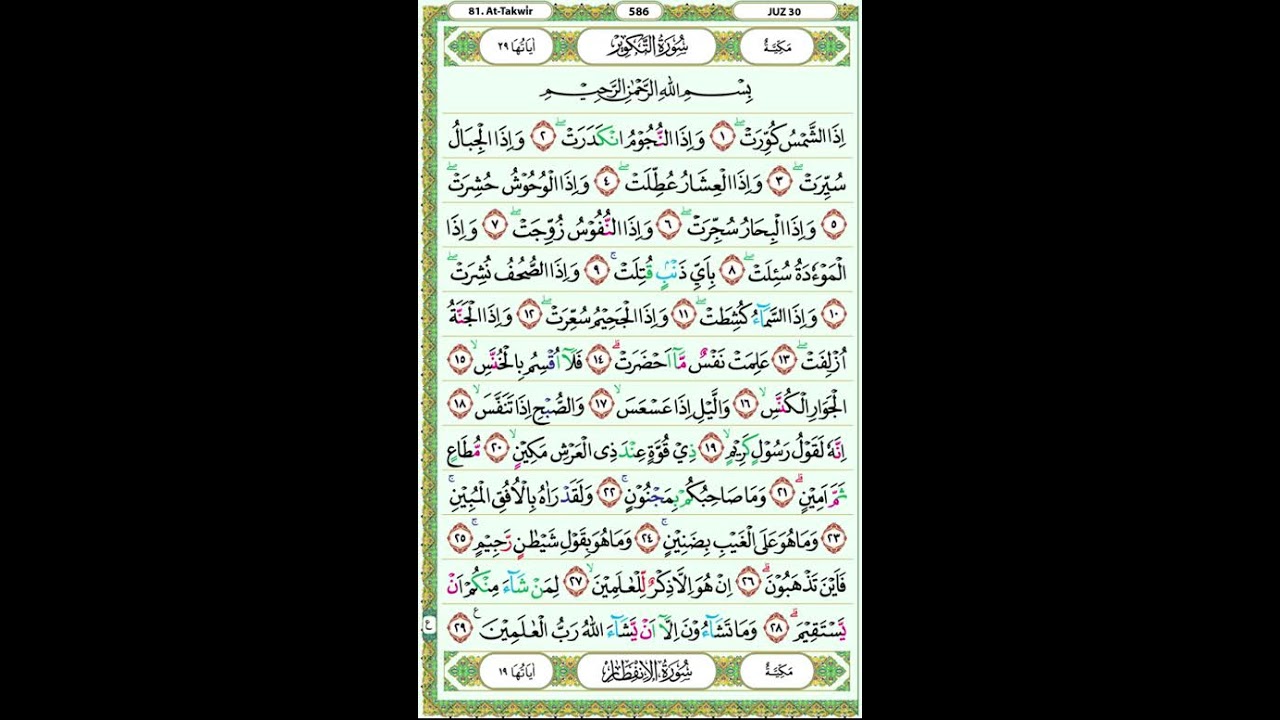 81. At-Takwir 586 JUZ 30
مَكِّيَّةٌ سُوْرَةُ التَّكْوِيْرِ اٰيَاتُهَا ٢٩
بِسْمِ اللّٰهِ الرَّحْمٰنِ الرَّحِيْمِ
اِذَا الشَّمْسُ كُوِّرَتْۖ ١ وَاِذَا النُّجُوْمُ انْكَدَرَتْۖ ٢ وَاِذَا الْجِبَالُ
سُيِّرَتْۖ ٣ وَاِذَا الْعِشَارُ عُطِّلَتْۖ ٤ وَاِذَا الْوُحُوْشُ حُشِرَتْۖ
٥ وَاِذَا الْبِحَارُ سُجِّرَتْۖ ٦ وَاِذَا النُّفُوْسُ زُوِّجَتْۖ ٧ وَاِذَا
الْمَوْءٗدَةُ سُئِلَتْۖ ٨ بِاَيِّ ذَنْۢبٍ قُتِلَتْۚ ٩ وَاِذَا الصُّحُفُ نُشِرَتْۖ
١٠ وَاِذَا السَّمَاۤءُ كُشِطَتْۖ ١١ وَاِذَا الْجَحِيْمُ سُعِّرَتْۖ ١٢ وَاِذَا الْجَنَّةُ
اُزْلِفَتْۖ ١٣ عَلِمَتْ نَفْسٌ مَّآ اَحْضَرَتْۗ ١٤ فَلَآ اُقْسِمُ بِالْخُنَّسِۙ ١٥
الْجَوَارِ الْكُنَّسِۙ ١٦ وَالَّيْلِ اِذَا عَسْعَسَۙ ١٧ وَالصُّبْحِ اِذَا تَنَفَّسَۙ ١٨
اِنَّهٗ لَقَوْلُ رَسُوْلٍ كَرِيْمٍۙ ١٩ ذِيْ قُوَّةٍ عِنْدَ ذِى الْعَرْشِ مَكِيْنٍۙ ٢٠ مُّطَاعٍ
ثَمَّ اَمِيْنٍۗ ٢١ وَمَا صَاحِبُكُمْ بِمَجْنُوْنٍۚ ٢٢ وَلَقَدْ رَاٰهُ بِالْاُفُقِ الْمُبِيْنِۚ
٢٣ وَمَا هُوَ عَلَى الْغَيْبِ بِضَنِيْنٍۚ ٢٤ وَمَا هُوَ بِقَوْلِ شَيْطٰنٍ رَّجِيْمٍۚ ٢٥
فَاَيْنَ تَذْهَبُوْنَۗ ٢٦ اِنْ هُوَ اِلَّا ذِكْرٌ لِّلْعٰلَمِيْنَۙ ٢٧ لِمَنْ شَاۤءَ مِنْكُمْ اَنْ
يَّسْتَقِيْمَۗ ٢٨ وَمَا تَشَاۤءُوْنَ اِلَّآ اَنْ يَّشَاۤءَ اللّٰهُ رَبُّ الْعٰلَمِيْنَ ࣖ ٢٩
ع
مَكِّيَّةٌ سُوْرَةُ الْاِنْفِطَارِ اٰيَاتُهَا ١٩